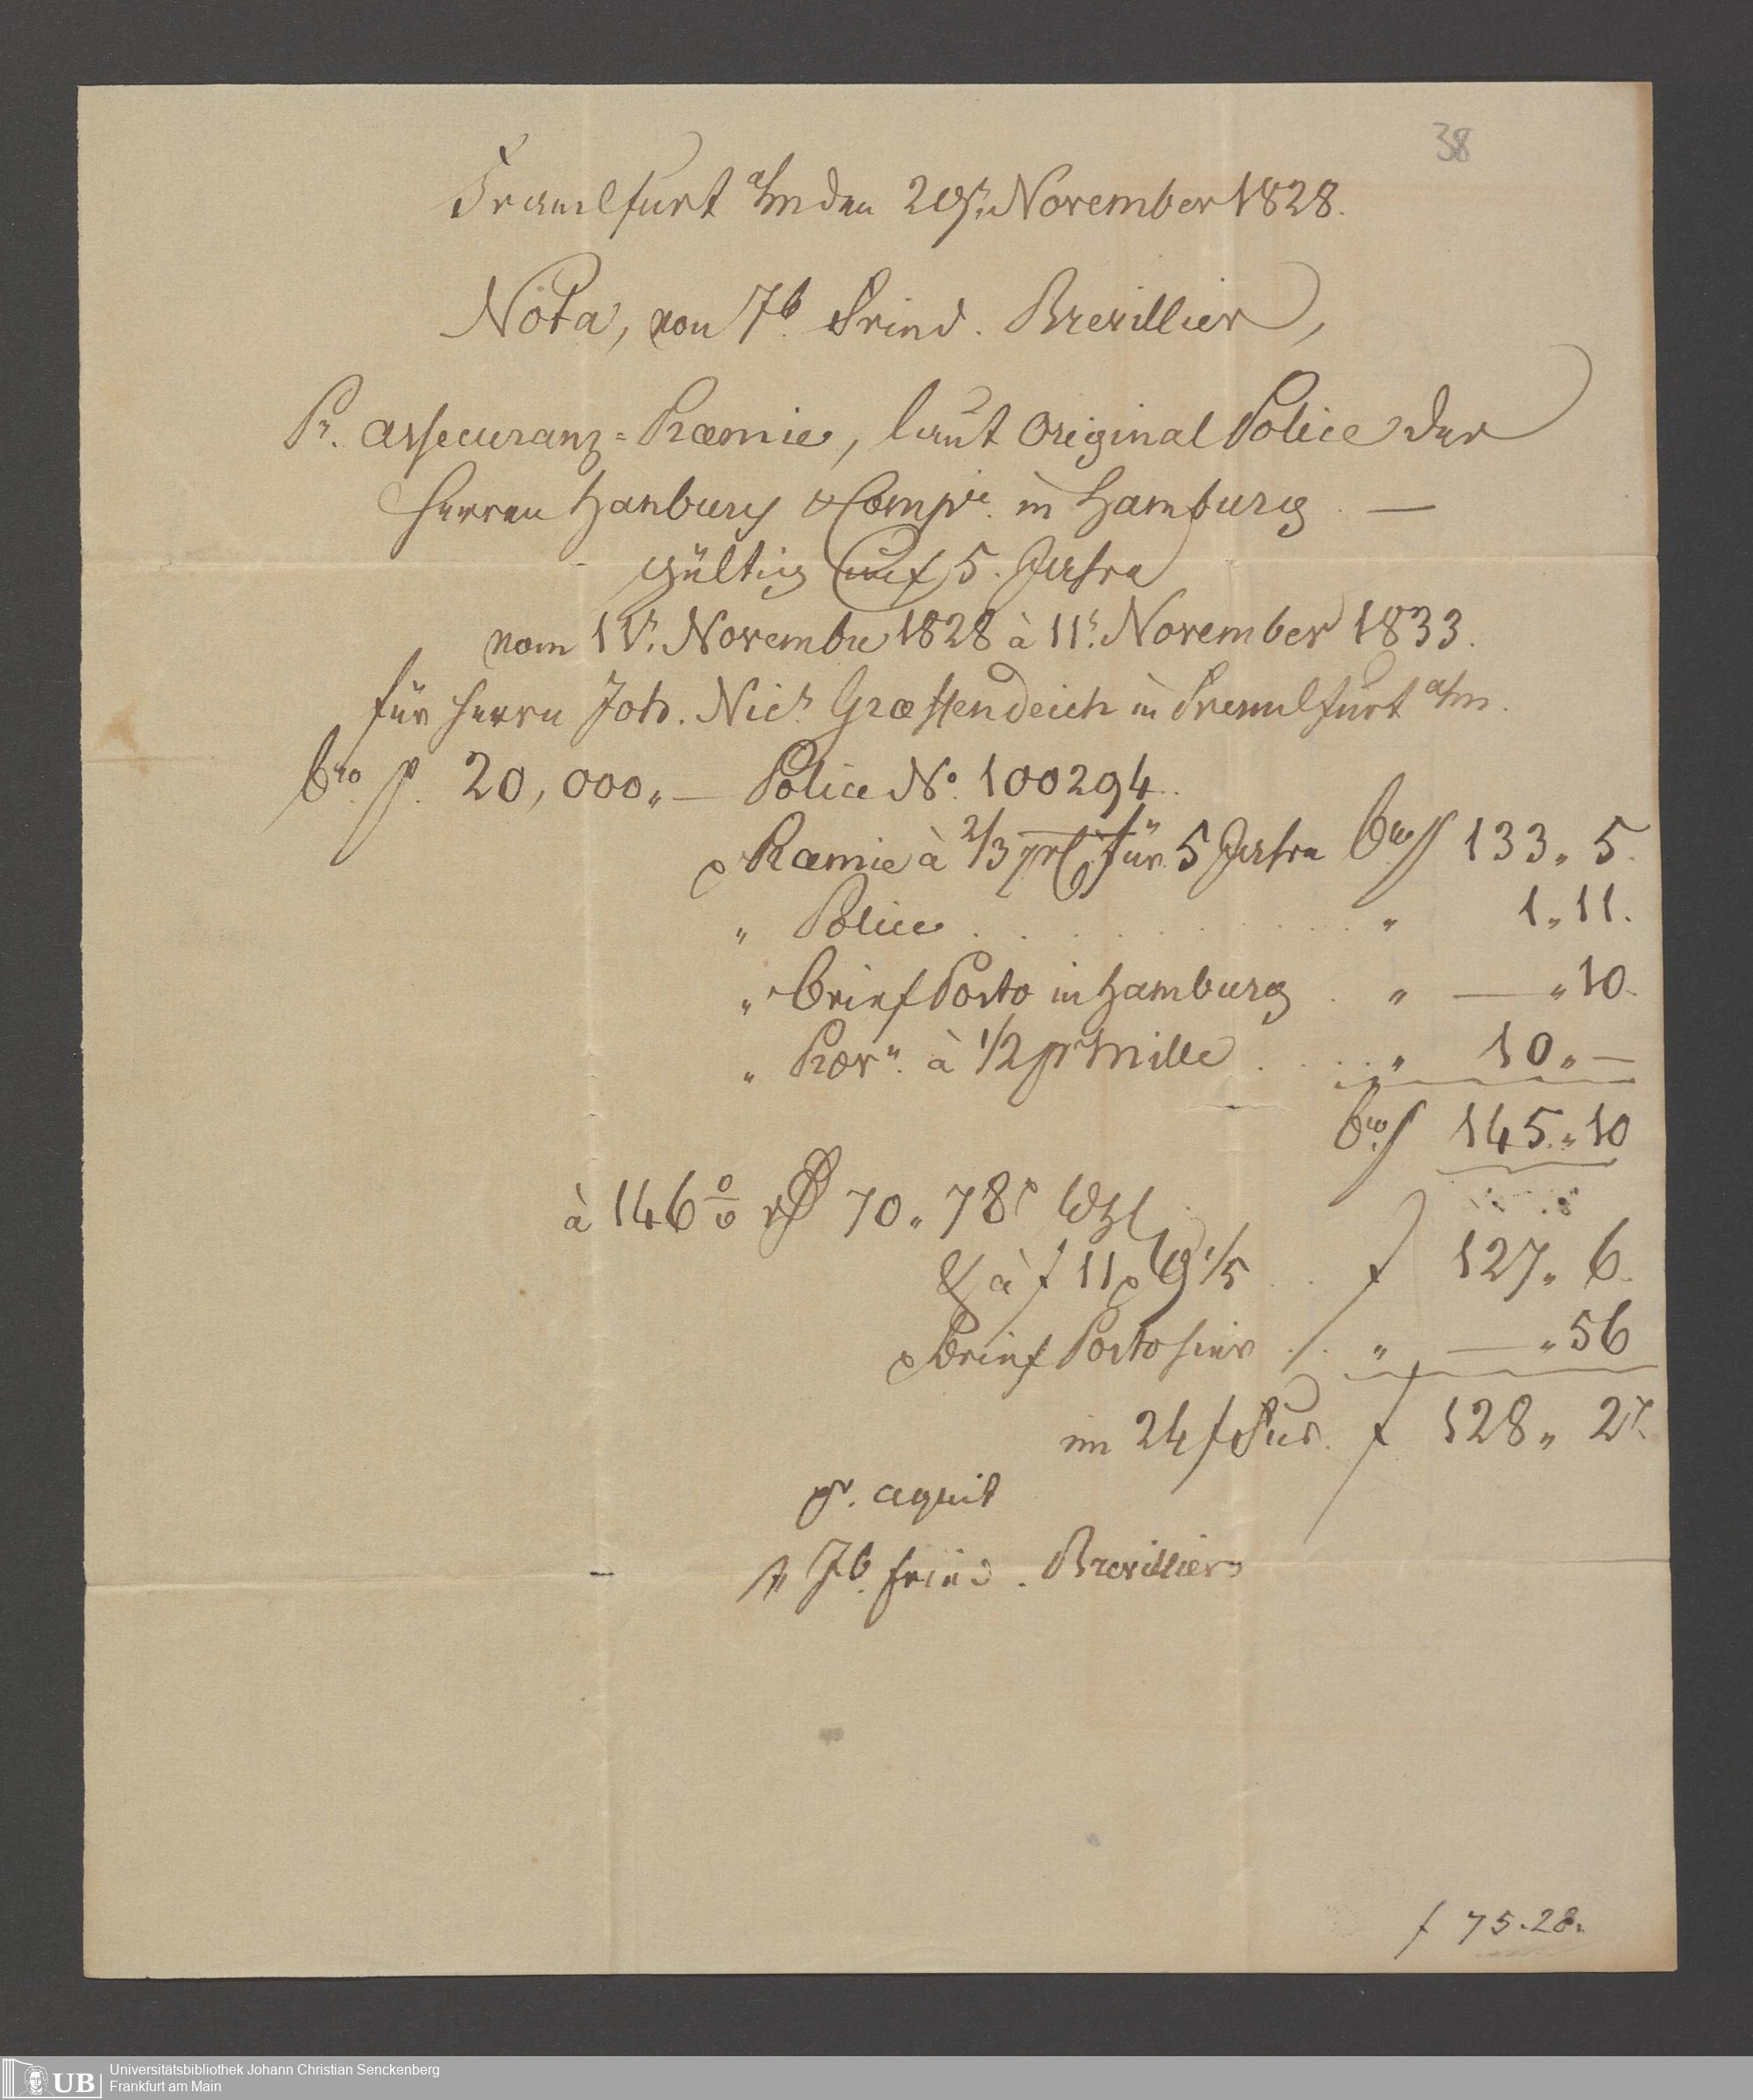 38
Frankfurt a/m den 29r. November 1828.
Nota, von Jb. Fried. Brevillier,
Pr. Assecuranz=Præmie, laut Original Police der
Herren Hanbury & Compie. in Hamburg. —
gültig auf 5. Jahre
vom 11r. Novembre 1828 à 11r. November 1833.
für Herrn Joh. Nics. Græffendeich in Frankfurt a/m.
bco. 20,000„— Police No. 100294.
Præmie à 2/3 für 5 Jahre bco 133„ 5.
„ Police . . . „ 1„11.
„ Brief Porto in Hamburg . „ —„10.
„ Prov. à 1/2 pr Mille . . . „ 10„—
bco 145„10
à 146 70„78
& à f 11 1/5 . . f 127„ 6.
Brief Porto hier . . „ —„56
im 24 f Fus. f 128„ 2
pr. aquit
Jb. Fried. Brevillier
f 75.28.
UB
Universitätsbibliothek Johann Christian Senckenberg
Frankfurt am Main